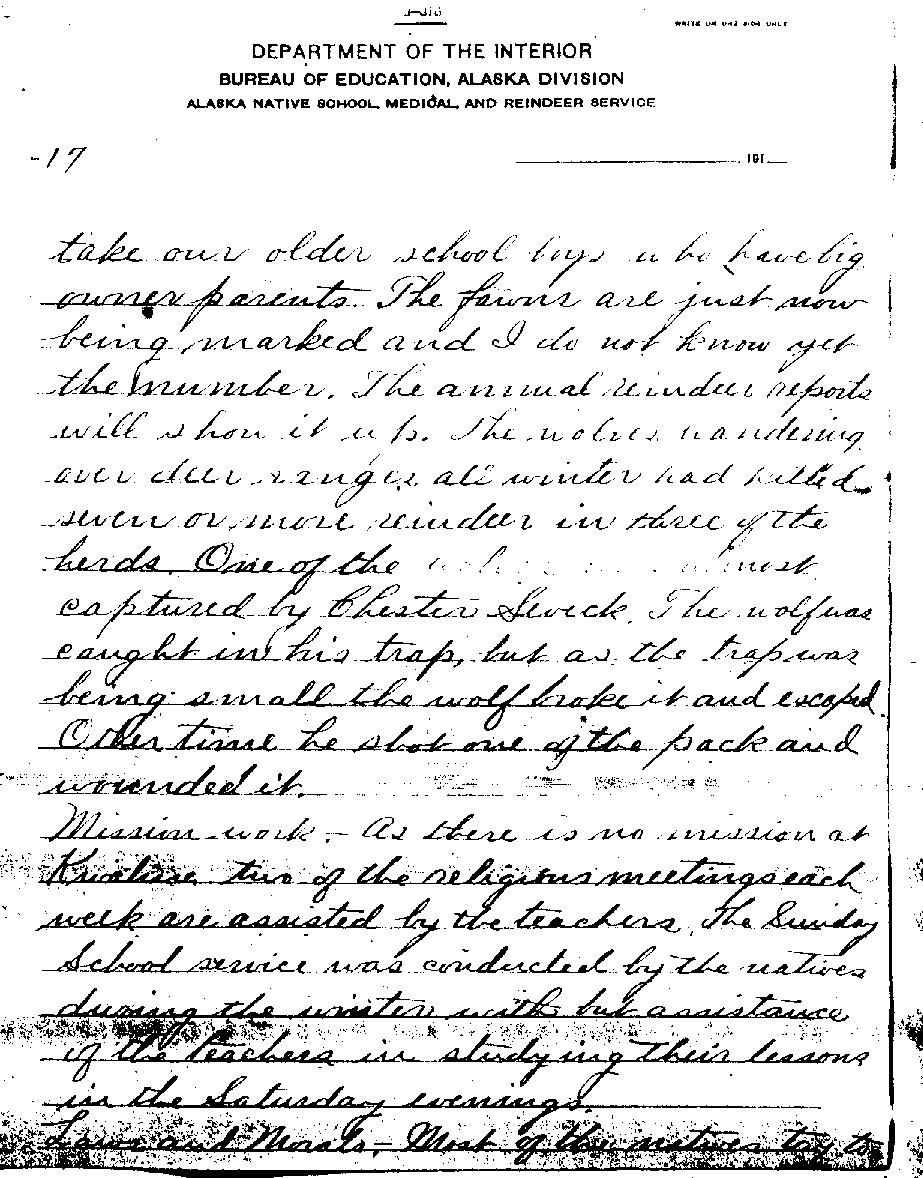 WRITE ON ONE SIDE ONLY
DEPARTMENT OF THE INTERIOR
BUREAU OF EDUCATION, ALASKA DIVISION
ALASKA NATIVE SCHOOL, MEDICAL, AND REINDEER SERVICE
-17
191
take our older school boys who have big
owner parents. The fawns are just now
being marked and I do not know yet
the number. The annual reindeer reports
will show it up. The wolves wandering
over deer ranges all winter had killed
seven or more reindeer in three of the
herds. One of the almost
captured by Chester Seveck. The wolf was
caught in his trap, but as the trap was
being small the wolf broke it and escaped.
Other time he shot one of the pack and
wounded it.
Mission work. - As there is no mission at
Kivalina two of the religious meetings each
week are assisted by the teachers. The Sunday
School service was conducted by the natives
during the winter with but assistance
of the teachers in studying their lessons
in the Saturday evenings.
Laws and Morals, - Most of the natives try to